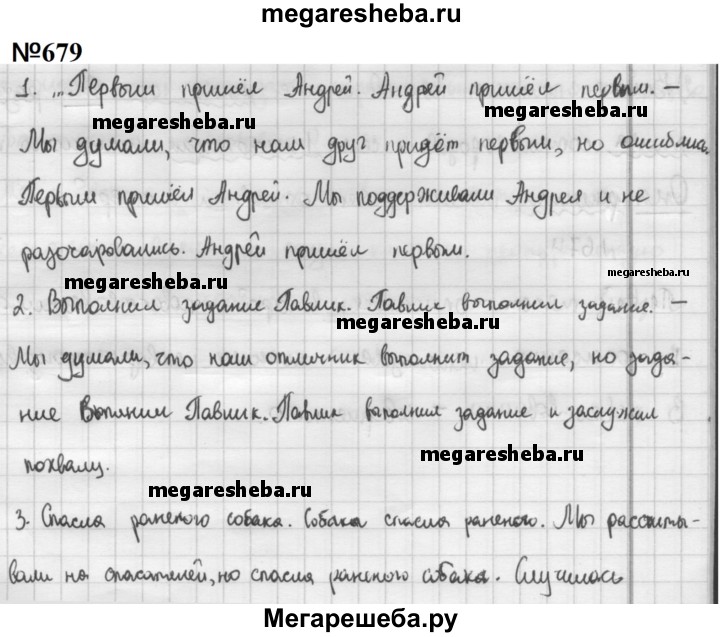 megaresheba.ru
№679
1. ...Первым пришёл Андрей. Андрей пришёл первым. –
megaresheba.ru
megaresheba.ru
Мы думали, что наш друг придёт первым, но ошиблись.
Первым пришёл Андрей. Мы поддерживали Андрея и не
разочаровались. Андрей пришёл первым.
megaresheba.ru
megaresheba.ru
2. Выполнил задание Павлик. Павлик выполнил задание. –
megaresheba.ru
Мы думали, что наш отличник выполнит задание, но зада-
ние выполнил Павлик. Павлик выполнил задание и заслужил
megaresheba.ru
похвалу.
megaresheba.ru
3. Спасла раненого собака. Собака спасла раненого. Мы рассчиты-
вали на спасателей, но спасла раненого собака. Случилось
Мегарешеба.ру